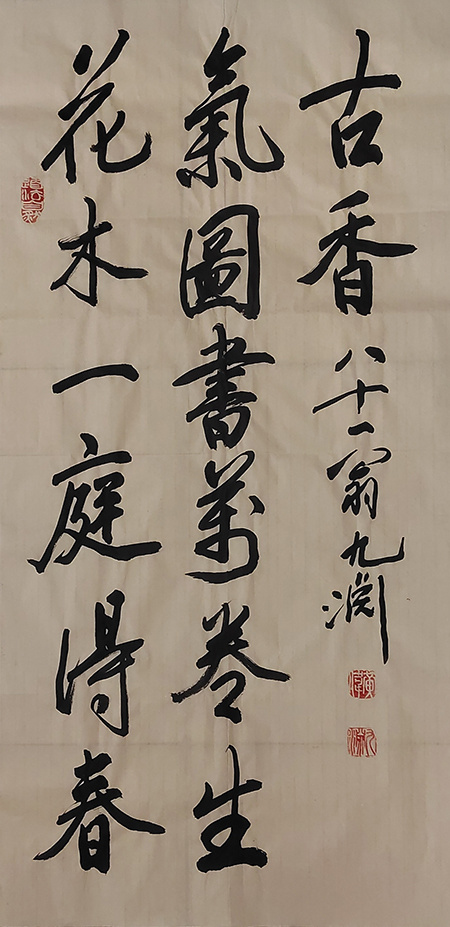 花木一庭得春
氣圖書萬卷生
古香
八十一翁九渊